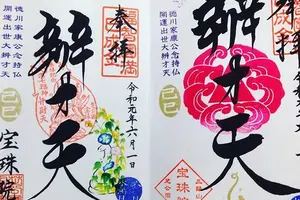 奉拝
徳川家康公念持仏
開運出世大辨才天
辨才天
己巳
令和元年六月一日
宝珠院
奉拝
徳川家康公念持仏
開運出世大辨才天
辨才天
己巳
宝珠院
宝珠院